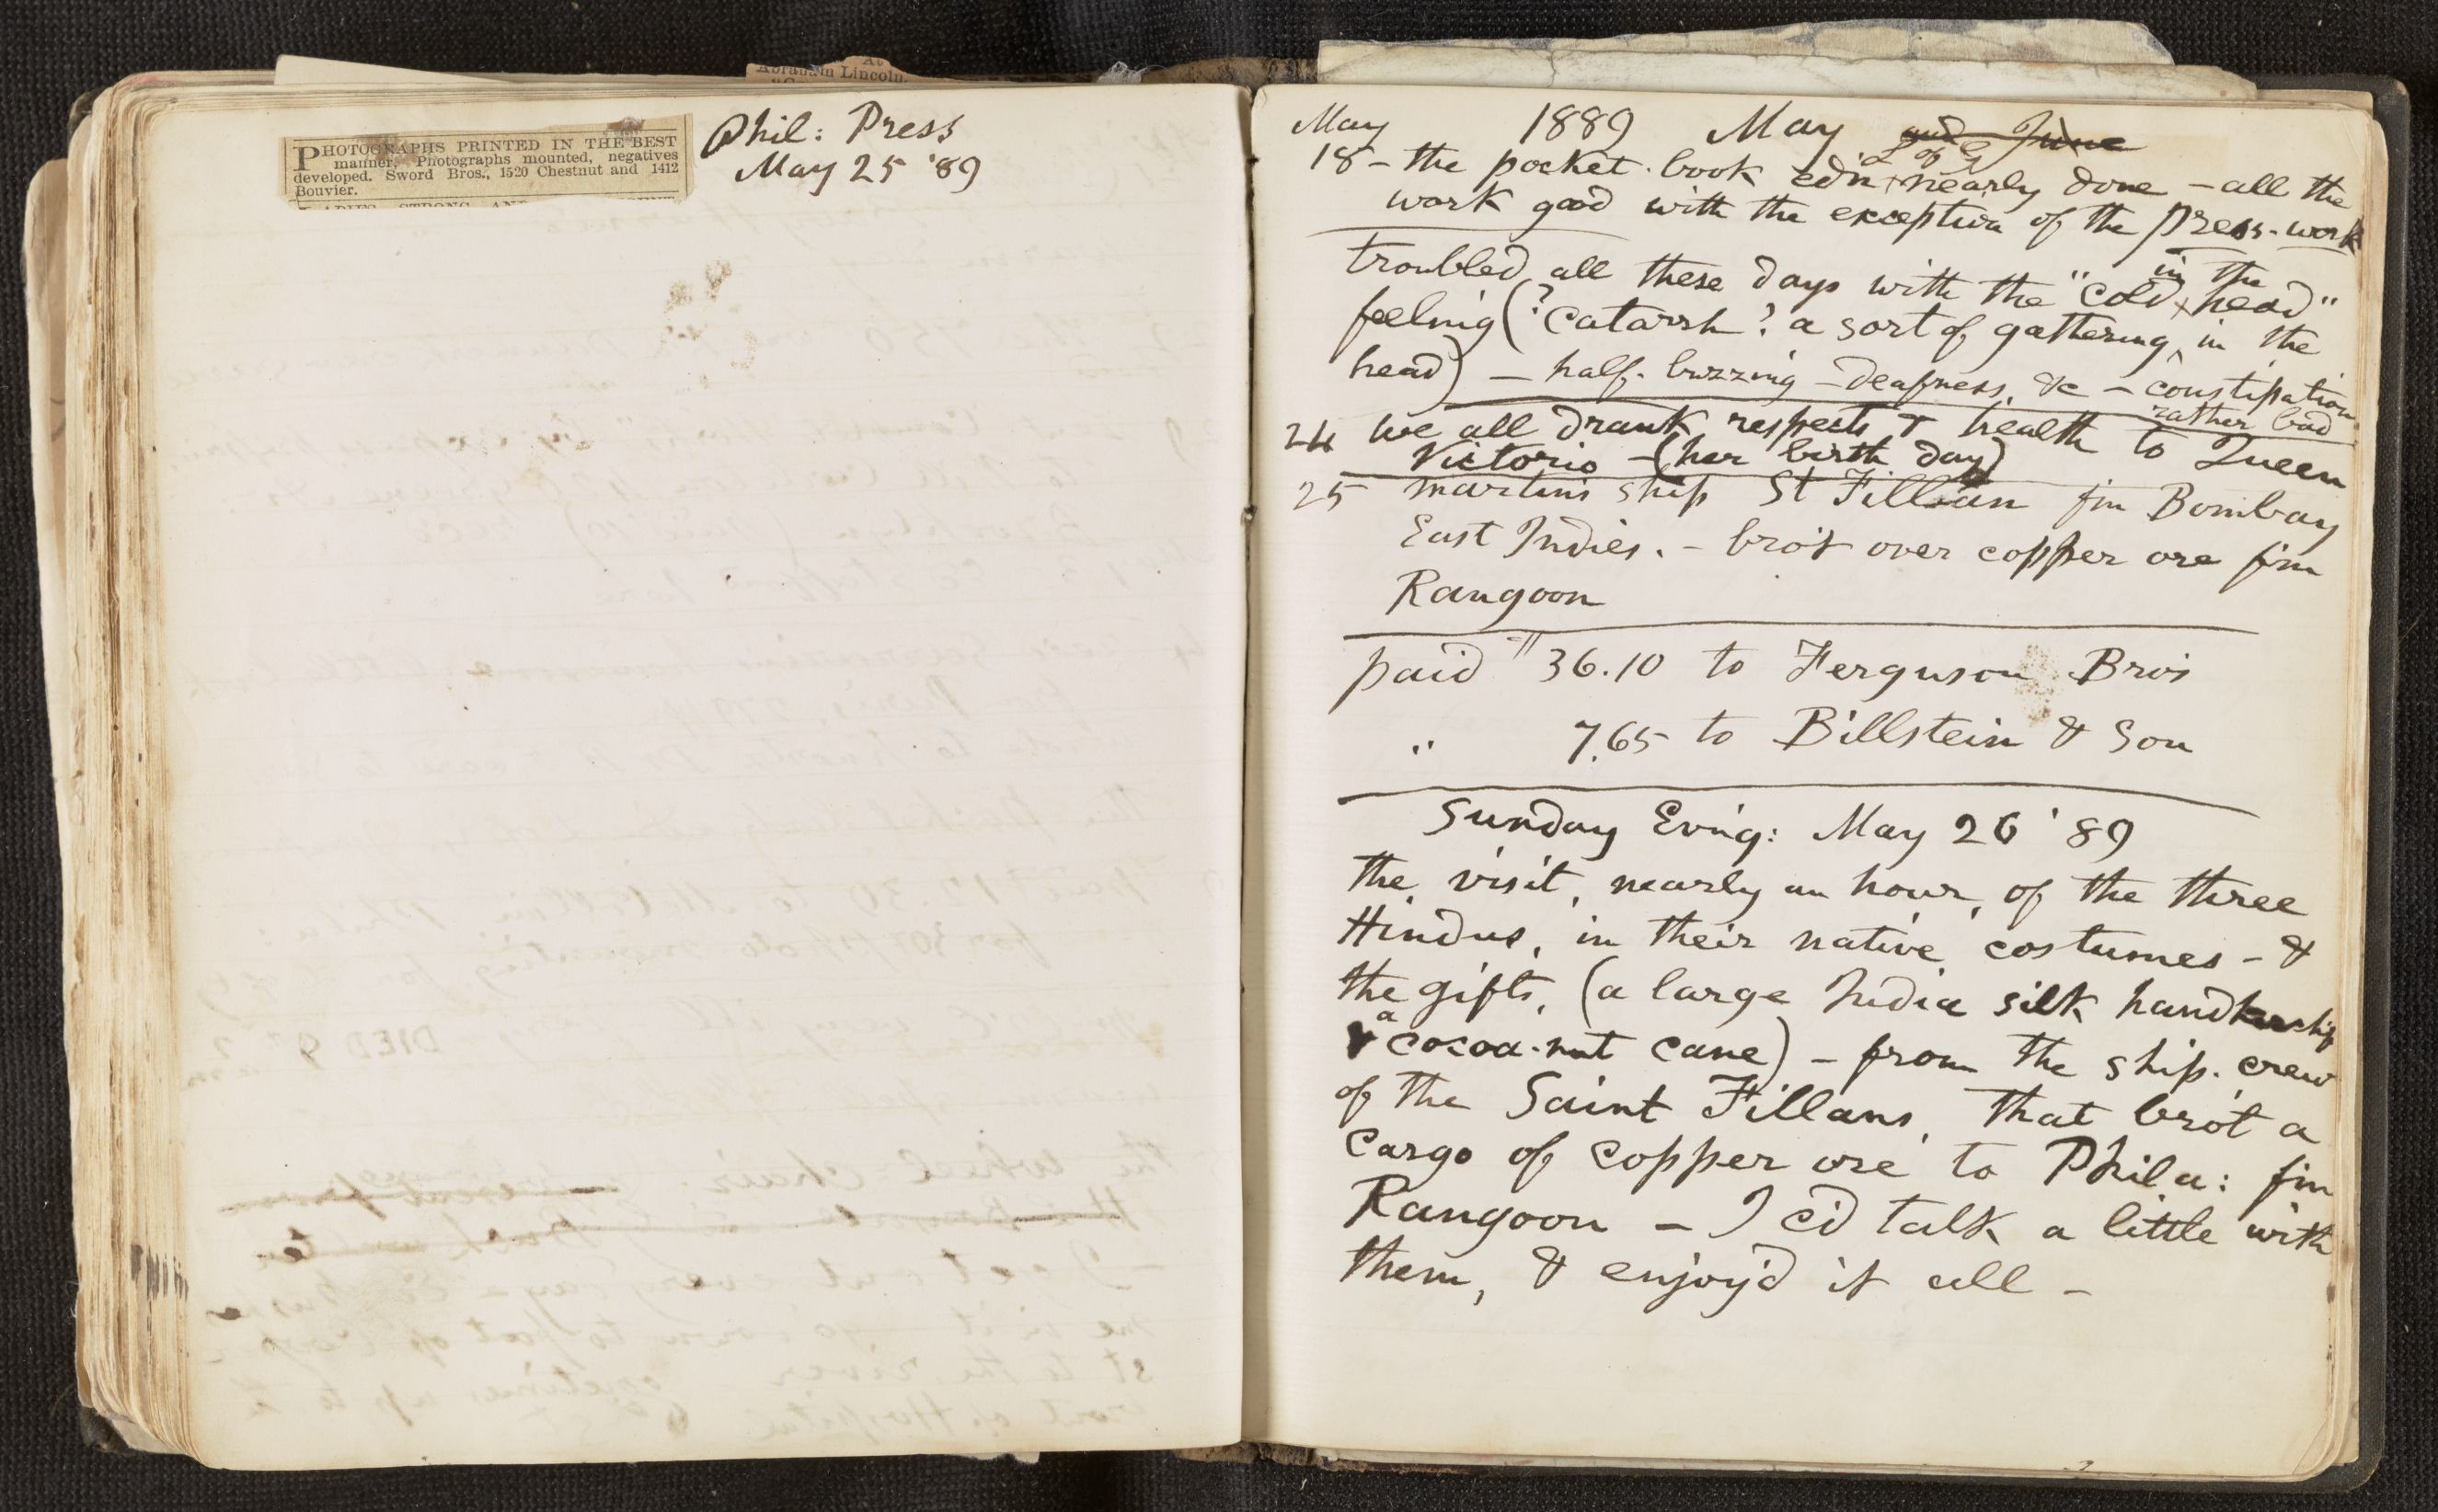 At
Abraham Lincoln.
PHOTOGRAPHS PRINTED IN THE BEST
manner, Photographs mounted, negatives
developed. Sword Bros., 1520 Chestnut and 1412
Bouvier.
LADIES STRONG AND
Phil: Press
May 25 '89
May 1889 May and June
L of G
18 – the pocket-book ed'n nearly done – all the
work good with the exception of the press-work
troubled all these days with the "cold in the head"
feeling (? catarrh ? a sort of gathering in the
head) – half-buzzing – deafness, &c – constipation
rather bad
24 we all drank respects & health to Queen
Victoria – (her birth day)
25 martin's ship St Fillan f'm Bombay
East Indies. – bro't over copper ore f'm
Rangoon
paid 36.10 to Ferguson Bro's
" 7.65 to Billstein & Son
Sunday Ev'ng: May 26 '89
the visit, nearly an hour, of the three
Hindus, in their native costumes – &
the gifts, (a large India silk handkerchief
& a cocoa-nut cane) – from the ship-crew
of the Saint Fillans, that bro't a
cargo of copper ore to Phila: f'm
Rangoon – I c'd talk a little with
them, & enjoy'd it all –